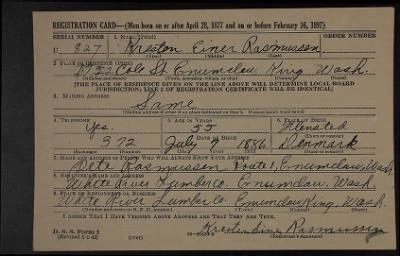 REGISTRATION CARD—(Men born on or after April 28, 1877 and on or before February 16, 1897)
SERIAL NUMBER 1. NAME (Print) ORDER NUMBER
U 327 Kresten Einer Rasmussen
(First) (Middle) (Last)
2. PLACE OF RESIDENCE (Print)
Cole St. Enumclaw King Wash.
(Number and street) (Town, township, village, or city) (County) (State)
[THE PLACE OF RESIDENCE GIVEN ON THE LINE ABOVE WILL DETERMINE LOCAL BOARD
JURISDICTION; LINE 2 OF REGISTRATION CERTIFICATE WILL BE IDENTICAL]
3. MAILING ADDRESS
Same
[Mailing address if other than place indicated on line 2. If same insert word same]
4. TELEPHONE 5. AGE IN YEARS 6. PLACE OF BIRTH
Yes. 55
DATE OF BIRTH
372 July 9 1886 Denmark
(Exchange) (Number) (Mo.) (Day) (Yr.) (State or country)
7. NAME AND ADDRESS OF PERSON WHO WILL ALWAYS KNOW YOUR ADDRESS
Pete Rasmussen Route 1, Enumclaw, Wash.
8. EMPLOYER'S NAME AND ADDRESS
White River Lumber Co. Enumclaw, Wash.
9. PLACE OF EMPLOYMENT OR BUSINESS
White River Lumber Co. Enumclaw King. Wash.
(Number and street or R. F. D. number) (Town) (County) (State)
I AFFIRM THAT I HAVE VERIFIED ABOVE ANSWERS AND THAT THEY ARE TRUE.
D. S. S. Form 1
(Revised 4-1-42) (over) Kresten Einer Rasmussen
(Registrant's signature)